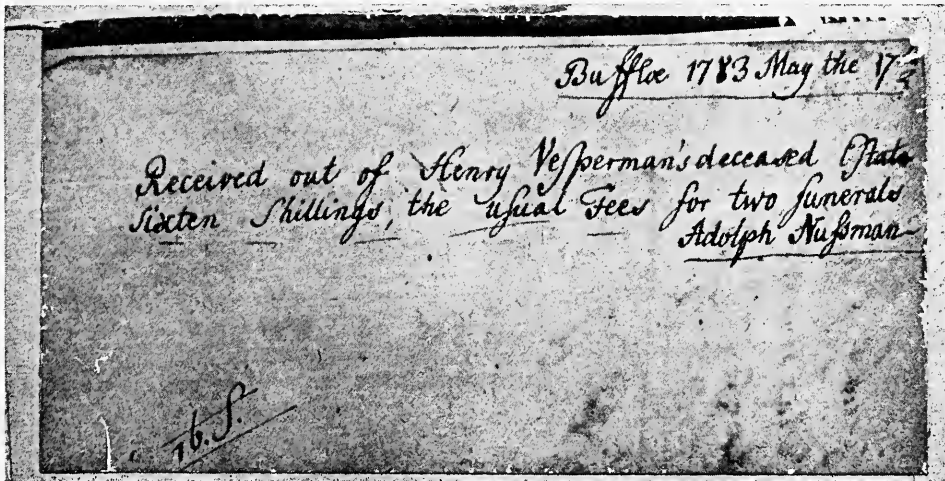 Buffloe 1783 May the 17th
Received out of Henry Veſperman's deceased Eſtate
ſixten ſhillings, the uſual Fees for two funerals
Adolph Nuſsman
16.S.